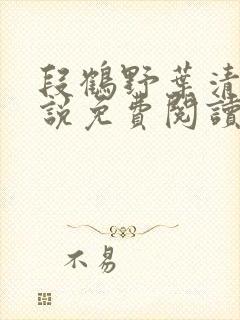 段鶴野葉清
說免費閱讀
不易